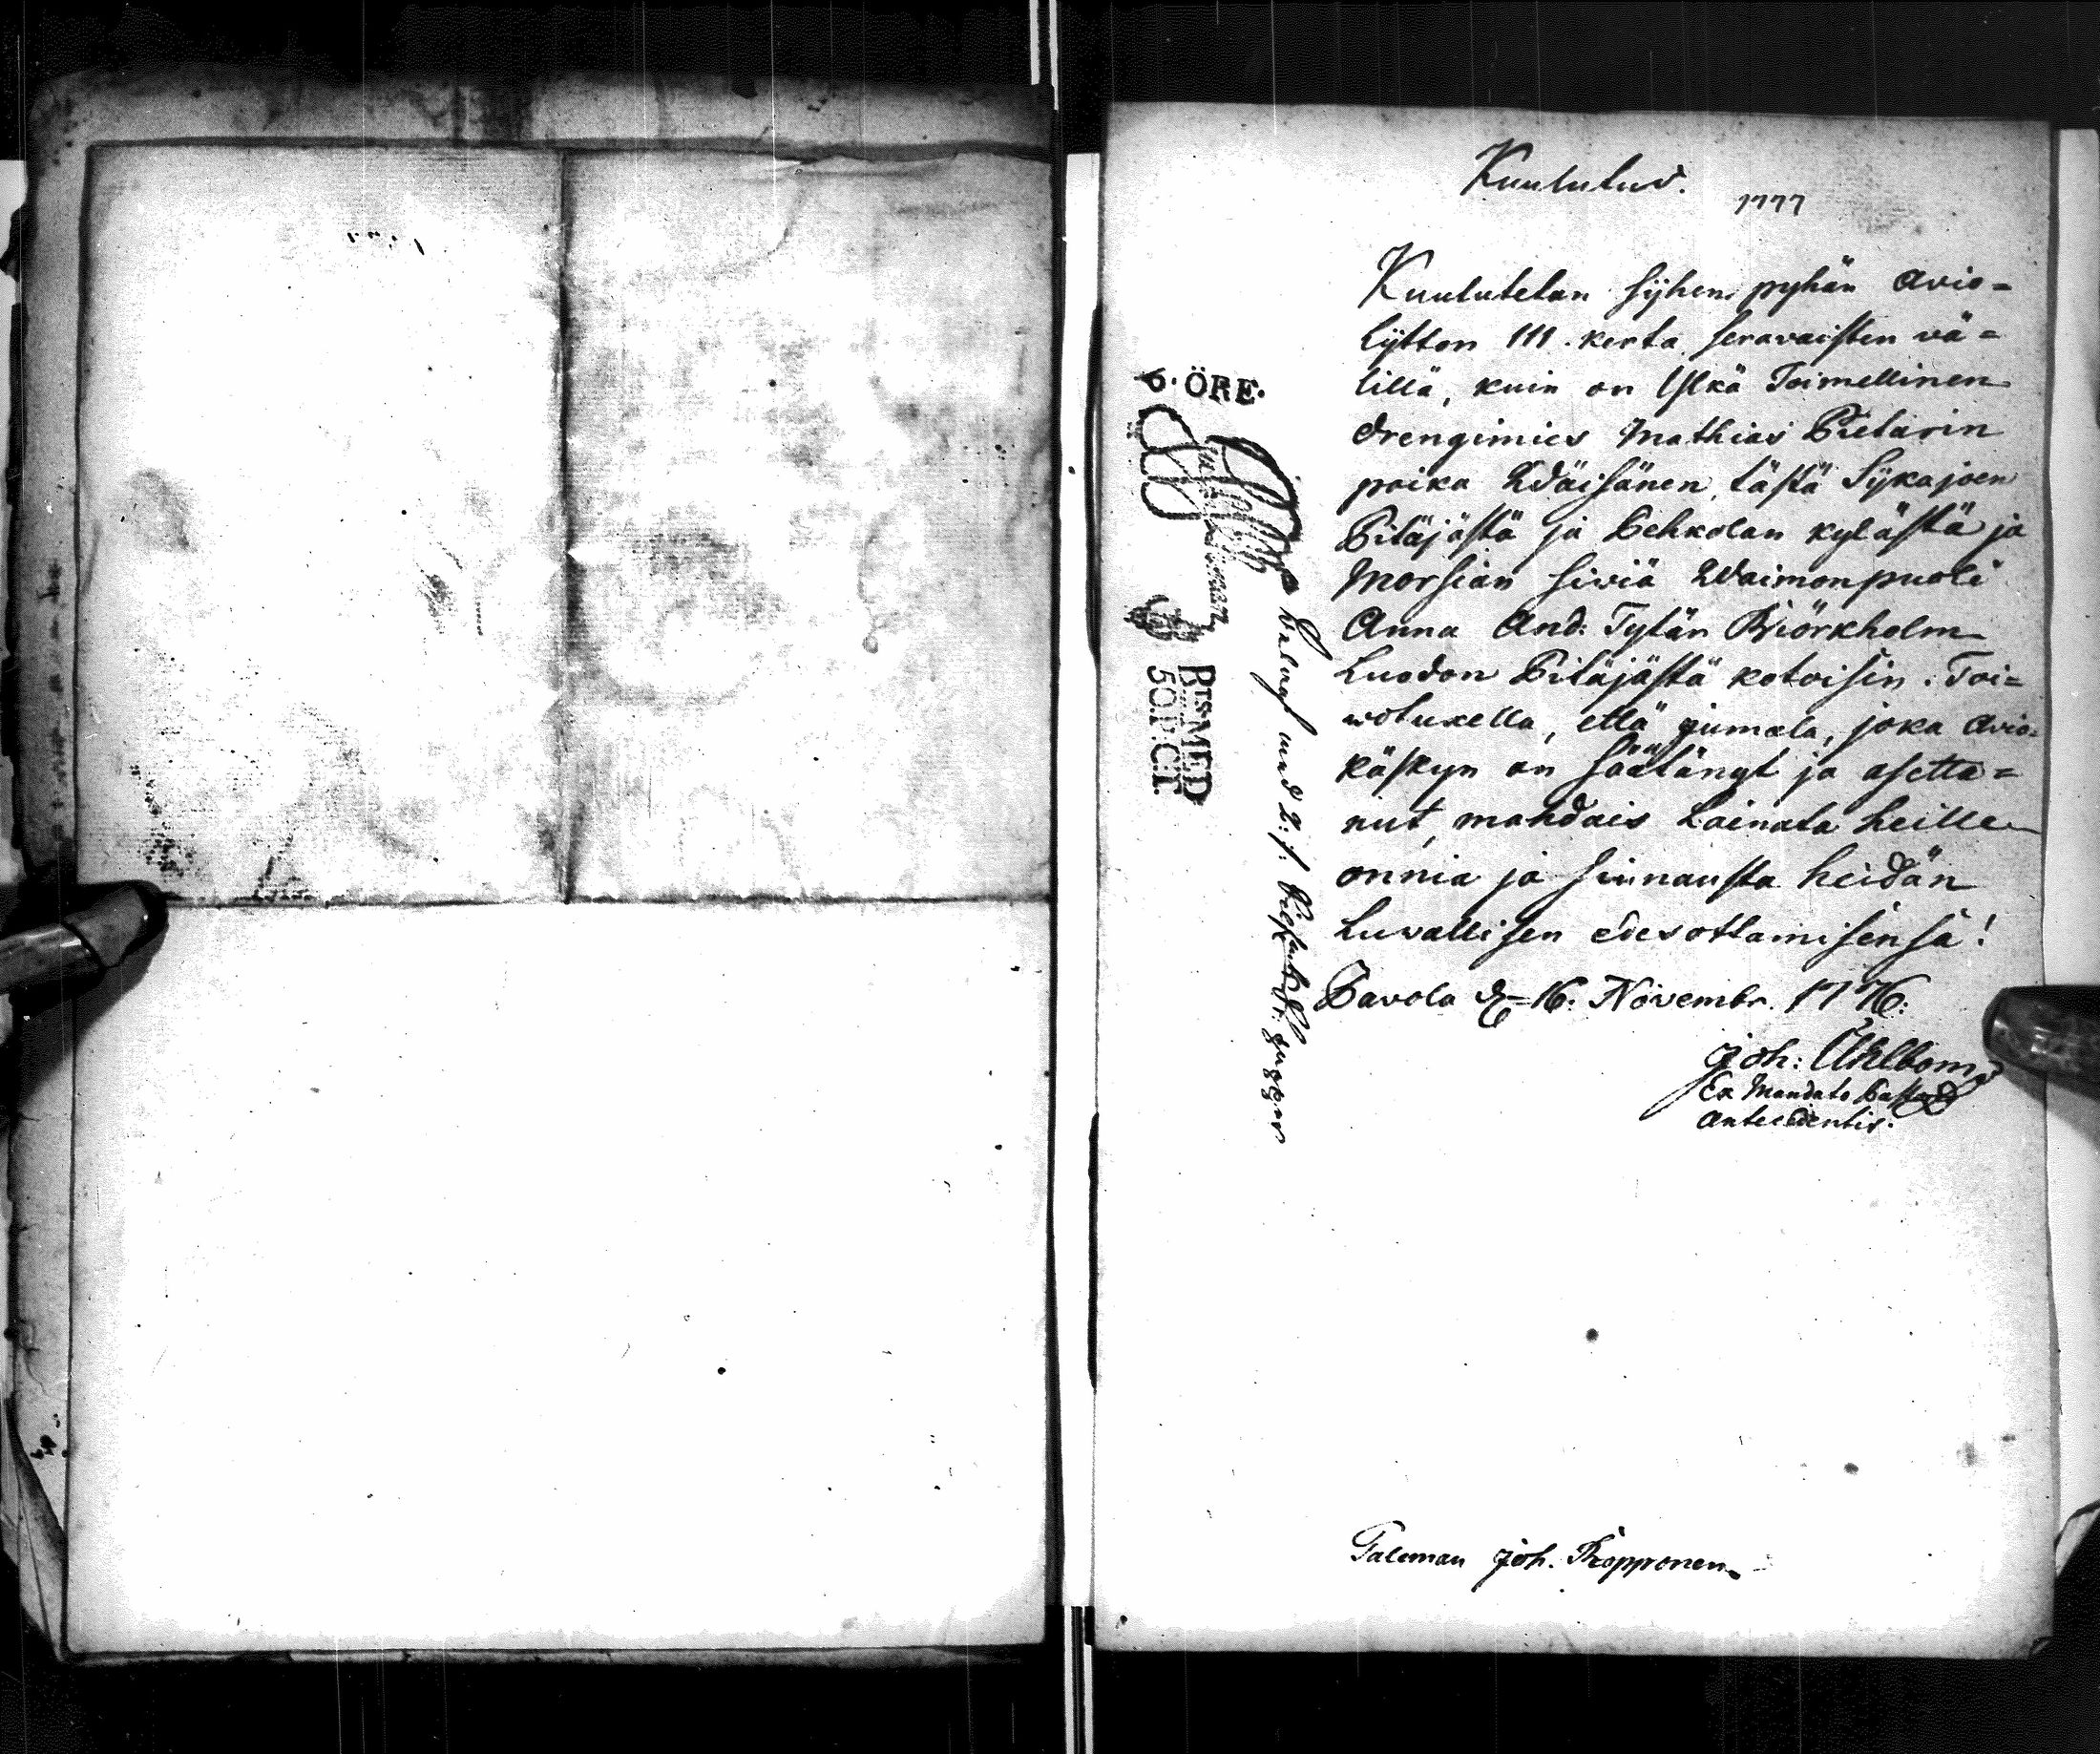 Kuulutus.
1777
Kuulutetan sijhen pyhän Avio=
Lijtton III. kerta seravaisten vä=
lillä, kuin on Ylkä Toimellinen
drengimies Mathias Pietarin
poika Wäisänen, tästä Sijkajoen
Pitäjästä ja Pehkolan kylästä ja
Morsian siviä Waimonpuoli
Anna And: Tytär Biörkholm
Luodon Pitäjästä kotoisin. Toi=
wotuxella, että jumala, joka Avio=
käskyn on säätänyt ja asetta=
nut, mahdais Lainata heille
onnia ja siunausta heidän
Luvallisen edesottamisensa!
Pavola d. 16. Novembr. 1776.
Joh: Uhlbom
Ex Mandato Pastoris
Antecedentis.
6. ÖRE.
BTS MED
50. P: CT.
Belagt med 2:
Taleman Joh. Kopponen